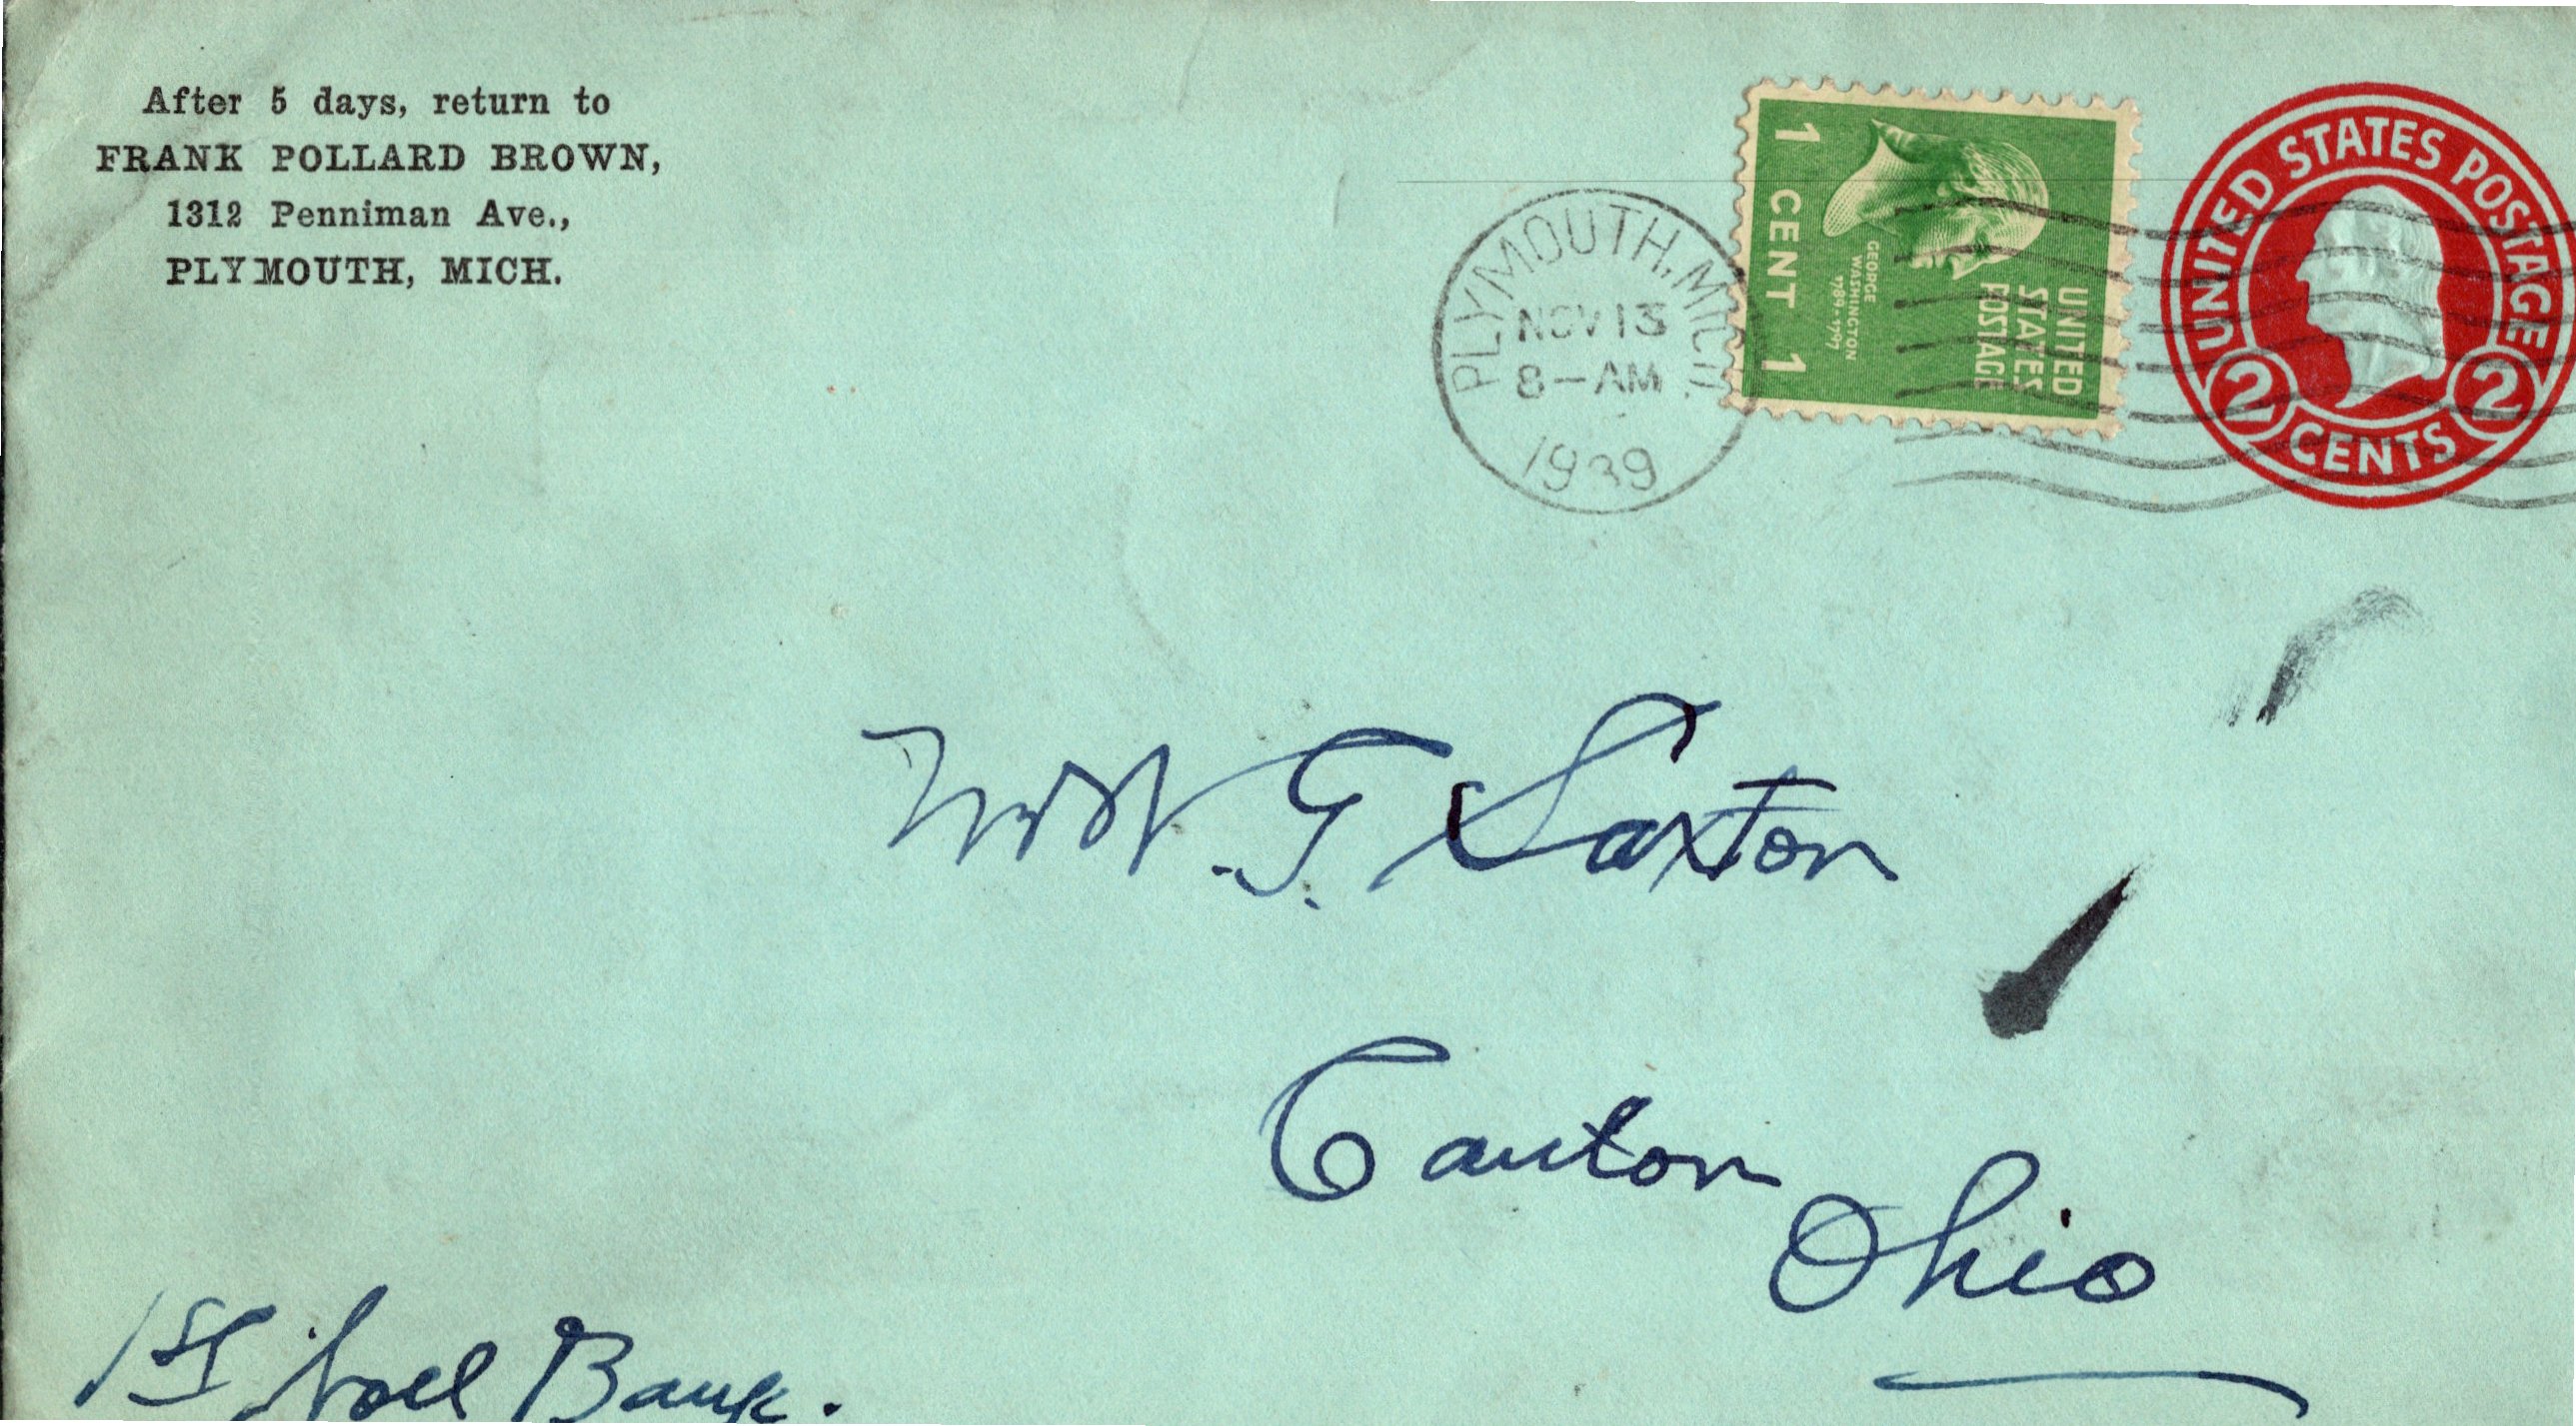 After 5 days, return to
FRANK POLLARD BROWN,
1312 Penniman Ave.,
PLYMOUTH, MICH.
PLYMOUTH, MICH.
NOV 13
8-AM
1939
1 CENT 1
GEORGE
WASHINGTON
1789-1797
UNITED
STATES
POSTAGE
UNITED STATES POSTAGE
2 CENTS 2
Mr W. G. Saxton
Canton
Ohio
1st Natl Bank.